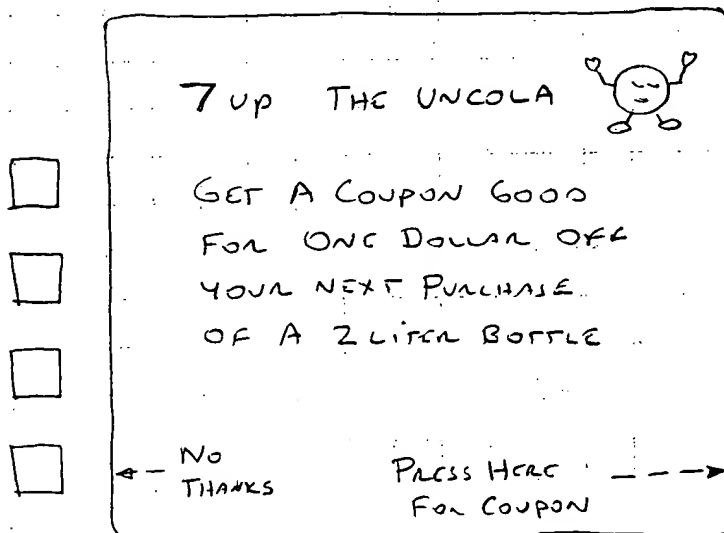 7 UP THE UNCOLA
GET A COUPON GOOD
FOR ONE DOLLAR OFF
YOUR NEXT PURCHASE
OF A 2 LITER BOTTLE
NO
THANKS
PRESS HERE
FOR COUPON